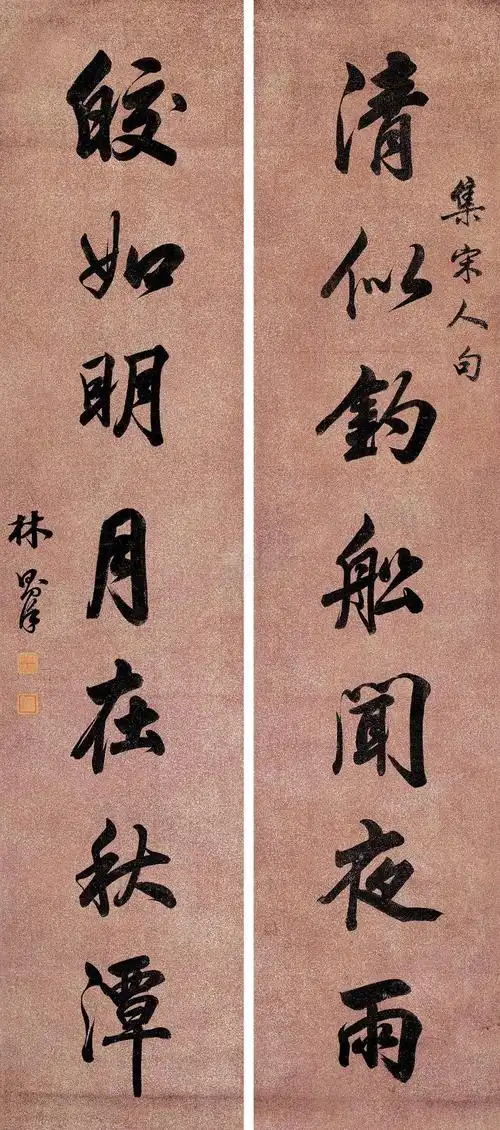 集宋人句
清似釣舩聞夜雨
皎如明月在秋潭
林